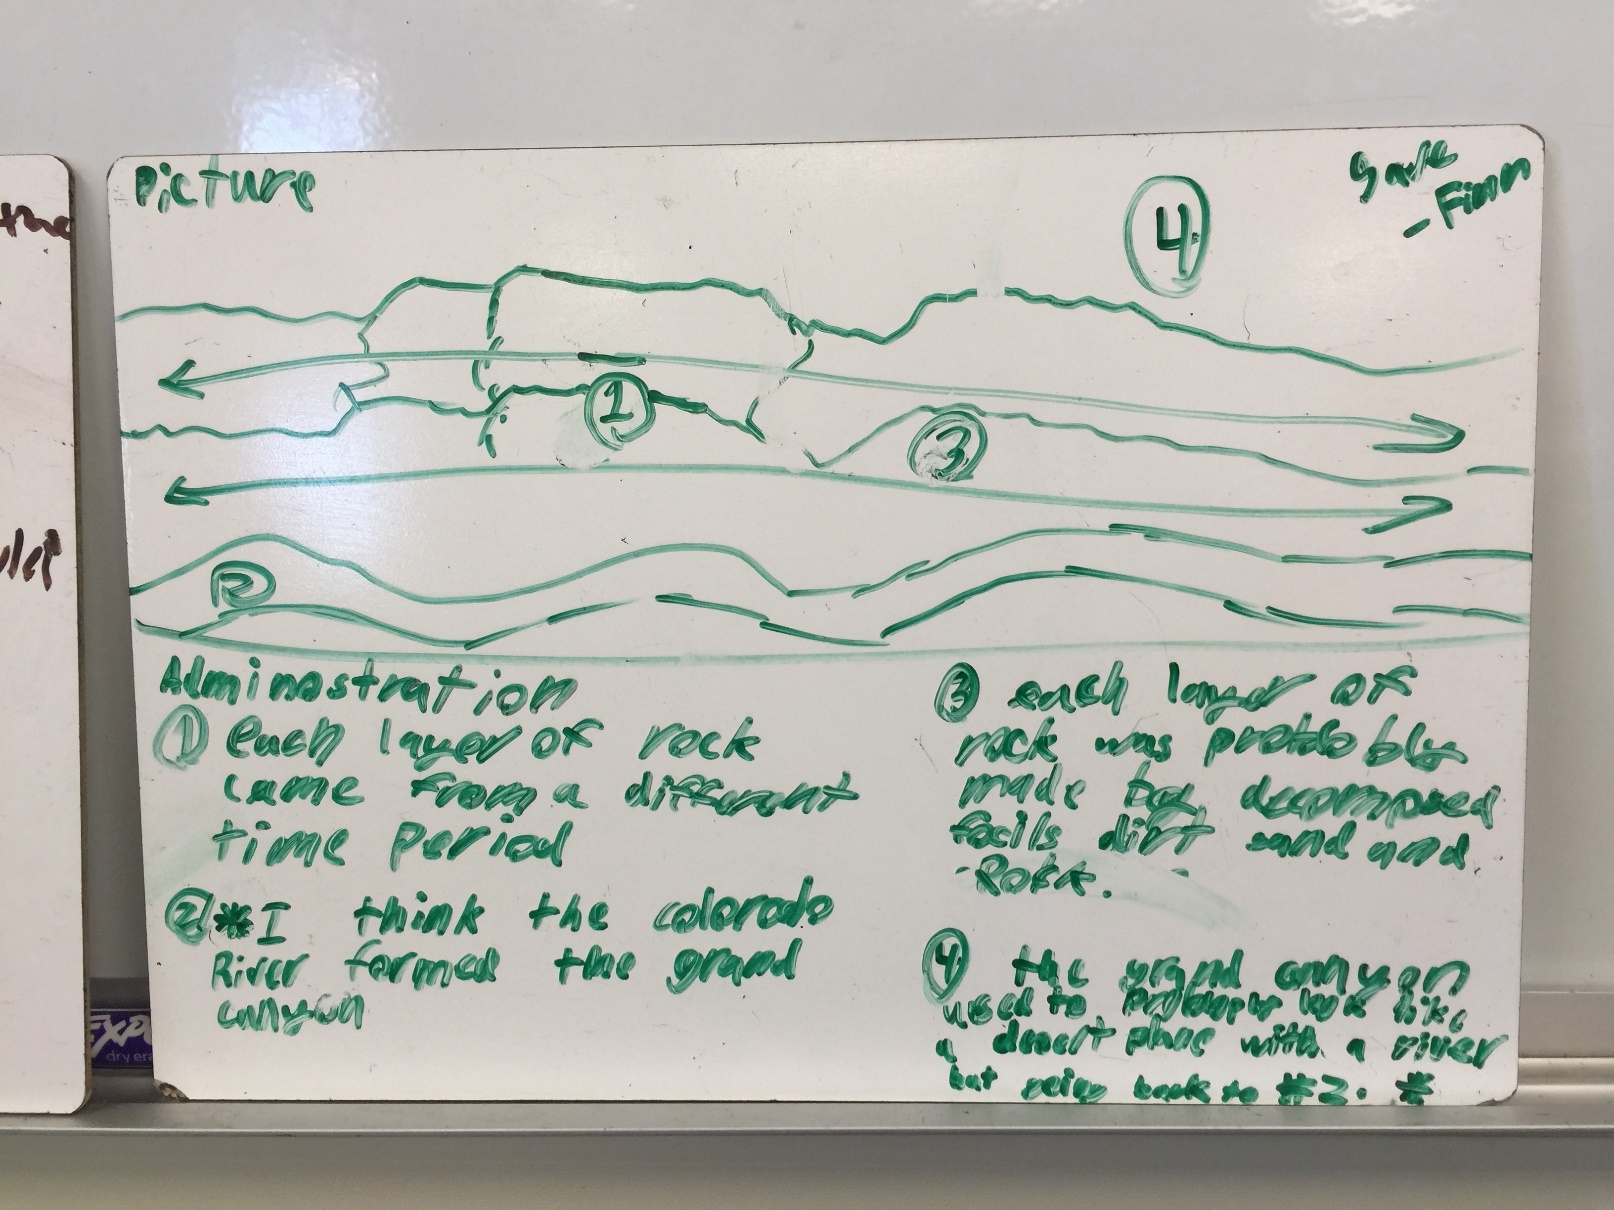 Picture
- Finn
4
1
3
2
Adminastration
1 each layer of rock
came from a different
time period
2 * I think the colorado
River formed the grand
canyon
3 each layer of
rock was probably
made by decomposed
fosils dirt sand and
Rokk.
4 the grand canyon
used to look like
a desert plane with a river
but back to #2. *
the
EXPO
dry era